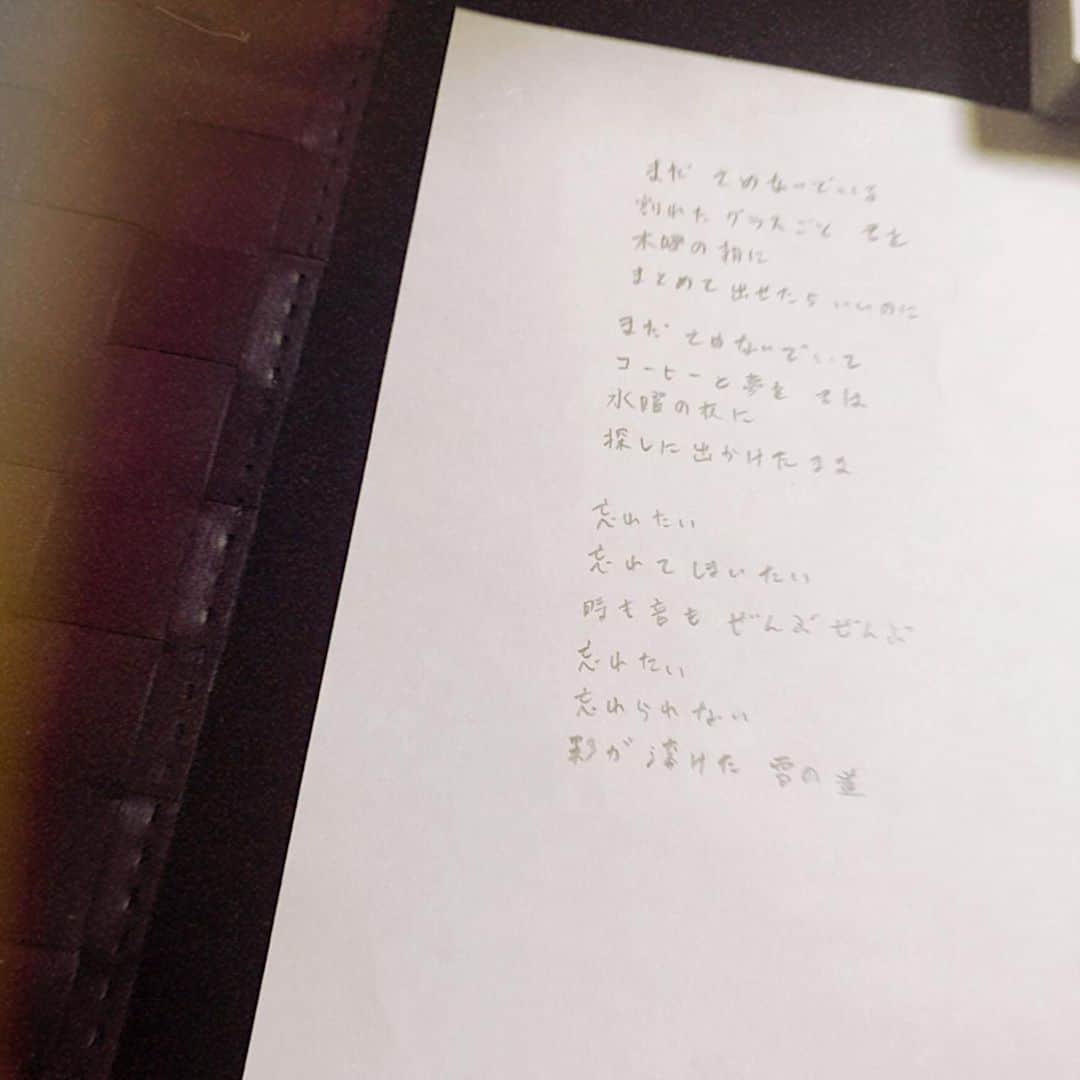 まだ さめないでいる
割れたグラスごと 君を
木曜の朝に
まとめて出せたらいいのに
まだ さめないでいて
コーヒーと夢を 君は
水曜の夜に
探しに出かけたまま
忘れたい
忘れてしまいたい
時も音も ぜんぶぜんぶ
忘れたい
忘れられない
影が溶けた 雪の道